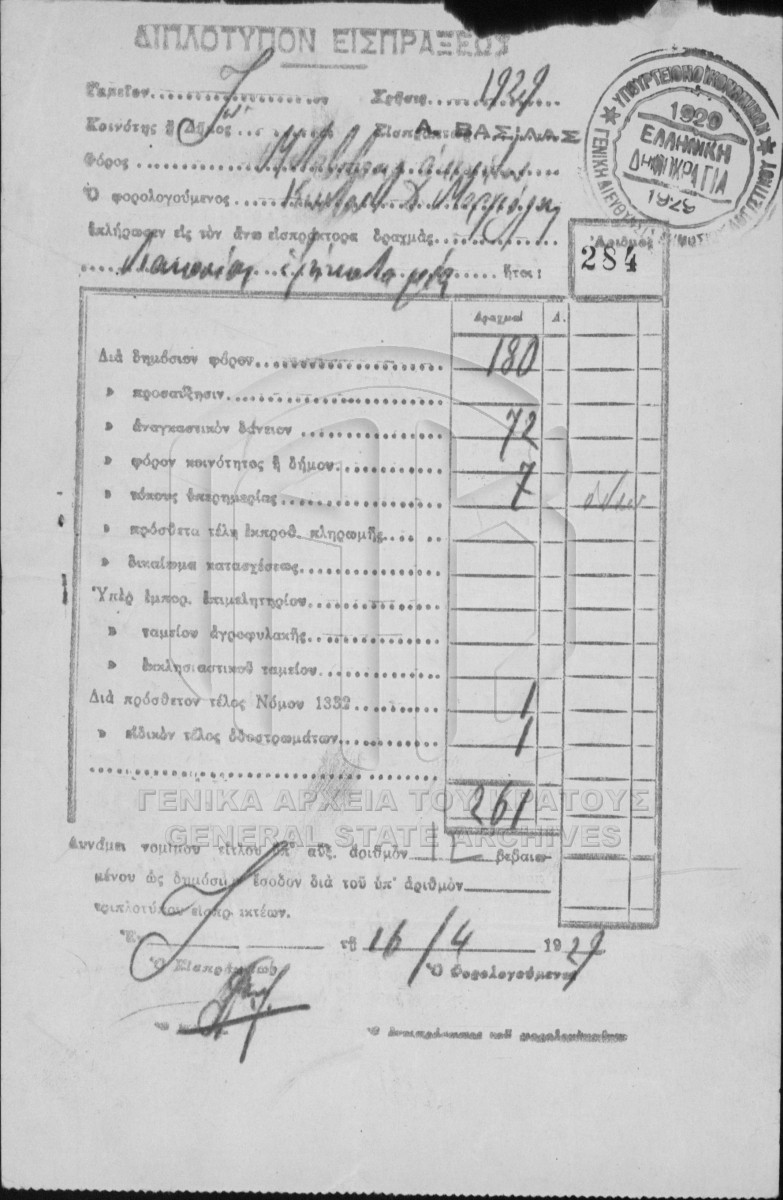 ΔΙΠΛΟΤΥΠΟΝ ΕΙΣΠΡΑΞΕΩΣ
Ταμεῖον Χρῆσις 1929
Κοινότης ἢ Δῆμος Α. ΒΑΣΙΛΑΣ
Φόρος
Ὁ φορολογούμενος
ἐπλήρωσεν εἰς τὸν ἄνω εἰσπράκτορα δραχμὰς
διακοσίας ἑξήκοντα μίαν ἤτοι:
ΥΠΟΥΡΓΕΙΟΝ ΟΙΚΟΝΟΜΙΚΩΝ
1920
ΕΛΛΗΝΙΚΗ
ΔΗΜΟΚΡΑΤΙΑ
1929
Ἀριθμὸς
284
Δραχμαὶ Λ.
Διὰ δημόσιον φόρον 180
» προσαύξησιν
» ἀναγκαστικὸν δάνειον 72
» φόρον κοινότητος ἢ δήμου 7
» τόκους ὑπερημερίας
» πρόσθετα τέλη ἐκπροθ. πληρωμῆς
» δικαίωμα κατασχέσεως
Ὑπὲρ ἐμπορ. ἐπιμελητηρίου
» ταμείου ἀγροφυλακῆς
» ἐκκλησιαστικοῦ ταμείου
Διὰ πρόσθετον τέλος Νόμου 1332 1
» εἰδικὸν τέλος ὁδοστρωμάτων 1
261
ΓΕΝΙΚΑ ΑΡΧΕΙΑ ΤΟΥ ΚΡΑΤΟΥΣ
GENERAL STATE ARCHIVES
Δυνάμει νομίμου τίτλου ὑπ' αὔξ. ἀριθμὸν βεβαιω-
μένου ὡς δημόσιον ἔσοδον διὰ τοῦ ὑπ' ἀριθμὸν
τριπλοτύπου εἰσπρακτέων.
Ἐν τῇ 16/4 1929
Ὁ Εἰσπράκτωρ Ὁ Φορολογούμενος
Ὁ ἀντιπρόσωπος τοῦ φορολογουμένου